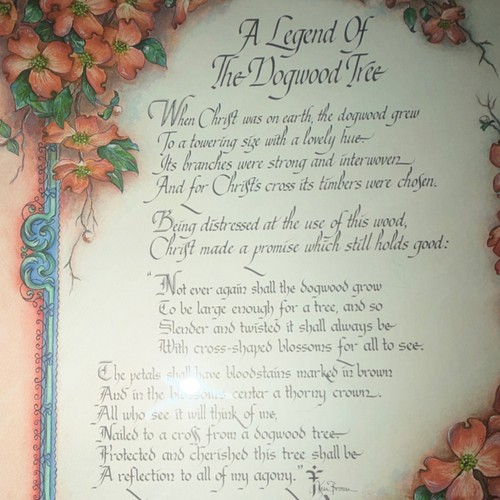 A Legend Of
The Dogwood Tree
When Christ was on earth, the dogwood grew
To a towering size with a lovely hue
Its branches were strong and interwoven
And for Christ's cross its timbers were chosen.
Being distressed at the use of this wood,
Christ made a promise which still holds good:
"Not ever again shall the dogwood grow
To be large enough for a tree, and so
Slender and twisted it shall always be
With cross-shaped blossoms for all to see.
The petals shall have bloodstains marked in brown
And in the blossoms center a thorny crown.
All who see it will think of me,
Nailed to a cross from a dogwood tree
Protected and cherished this tree shall be
A reflection to all of my agony."